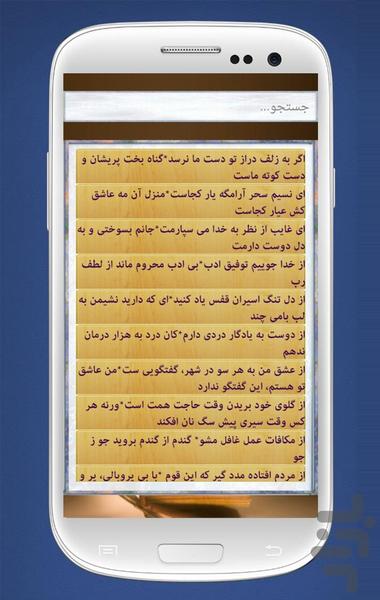 جستجو...
اگر به زلف دراز تو دست ما نرسد*گناه بخت پریشان و
دست کوته ماست
ای نسیم سحر آرامگه یار کجاست*منزل آن مه عاشق
کش عیار کجاست
ای غایب از نظر به خدا می سپارمت*جانم بسوختی و به
دل دوست دارمت
از خدا جوییم توفیق ادب*بی ادب محروم ماند از لطف
رب
از دل تنگ اسیران قفس یاد کنید*ای که دارید نشیمن به
لب بامی چند
از دوست به یادگار دردی دارم*کان درد به هزار درمان
ندهم
از عشق من به هر سو در شهر، گفتگویی ست*من عاشق
تو هستم، این گفتگو ندارد
از گلوی خود بریدن وقت حاجت همت است*ورنه هر
کس وقت سیری پیش سگ نان افکند
از مکافات عمل غافل مشو* گندم از گندم بروید جو ز
جو
از مردم افتاده مدد گیر که این قوم *با بی پروبالی، پر و
بازار